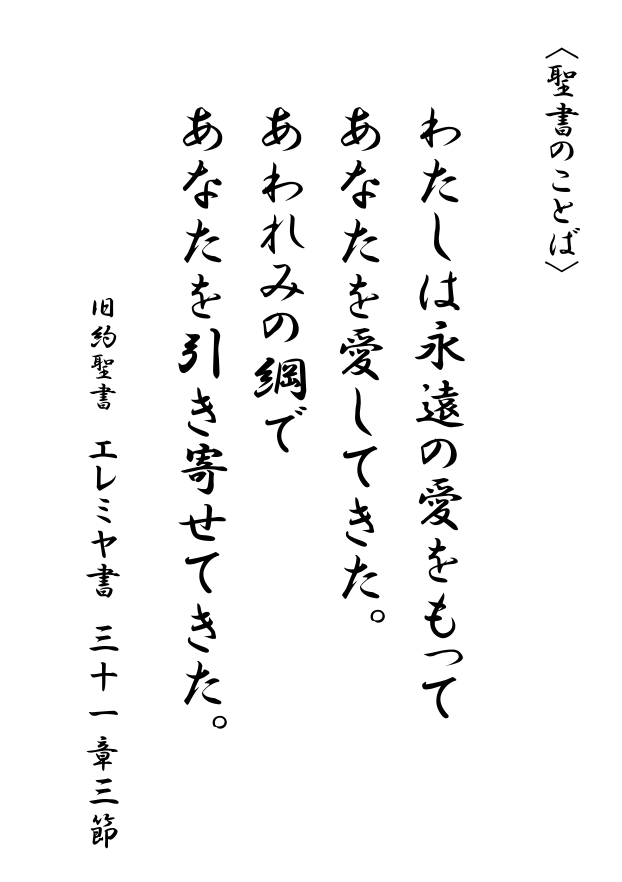 〈聖書のことば〉
わたしは永遠の愛をもって
あなたを愛してきた。
あわれみの綱で
あなたを引き寄せてきた。
旧約聖書　エレミヤ書　三十一章三節